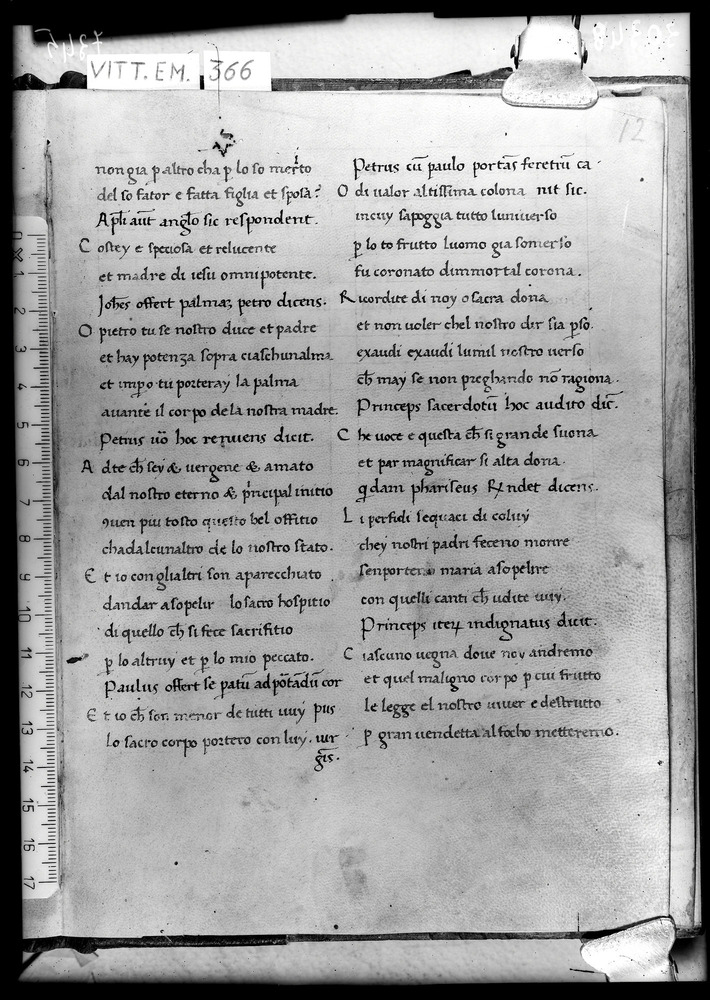 VITT. EM. 366
12
non gia p altro cha p lo so merito
del so fator e fatta figlia et sposa?
Apłi aūt anglo sic respondent.
Costey e speciosa et relucente
et madre di iesu omnipotente.
Johēs offert palmaȝ petro dicens.
O pietro tu se nostro duce et padre
et hay potenza sopra ciaschunalma
et impo tu porteray la palma
auante il corpo dela nostra madre.
Petrus uo hoc renuens dicit.
A dte ch̄ sey & uergene & amato
dal nostro eterno & pncipal initio
9uen piu tosto questo bel offitio
chadalcunaltro de lo nostro stato.
Et io con glialtri son aparecchiato
dandar asopelir lo sacro hospitio
di quello ch̄ si fece sacrifitio
p lo altruy et p lo mio peccato.
Paulus offert se patū ad portādū cor
Et io ch̄ son menor de tutti uuy pus
lo sacro corpo portero con luy. uir
gīs.
Petrus cū paulo portās feretrū ca
O di ualor altissima colona nit sic.
in cuy sapoggia tutto luniuerso
p lo to frutto luomo gia somerso
fu coronato dimmortal corona.
Ricordite di noy o sacra dona
et non uoler chel nostro dir sia pso.
exaudi exaudi lumil nostro uerso
ch̄ may se non preghando nō ragiona.
Princeps sacerdotū hoc audito dic̄.
Che uoce e questa ch̄ si grande suona
et par magnificar si alta dona.
qdam phariseus Rndet dicens.
Li perfidi sequaci di coluy
chey nostri padri feceno morire
senporteno maria asopelire
con quelli canti ch̄ udite uuy.
Princeps iteꝝ indignatus dicit.
Ciascuno uegna doue noy andremo
et quel maligno corpo p cui frutto
le legge el nostro uiuer e destrutto
p gran uendetta al focho metteremo.
0 1 2 3 4 5 6 7 8 9 10 11 12 13 14 15 16 17